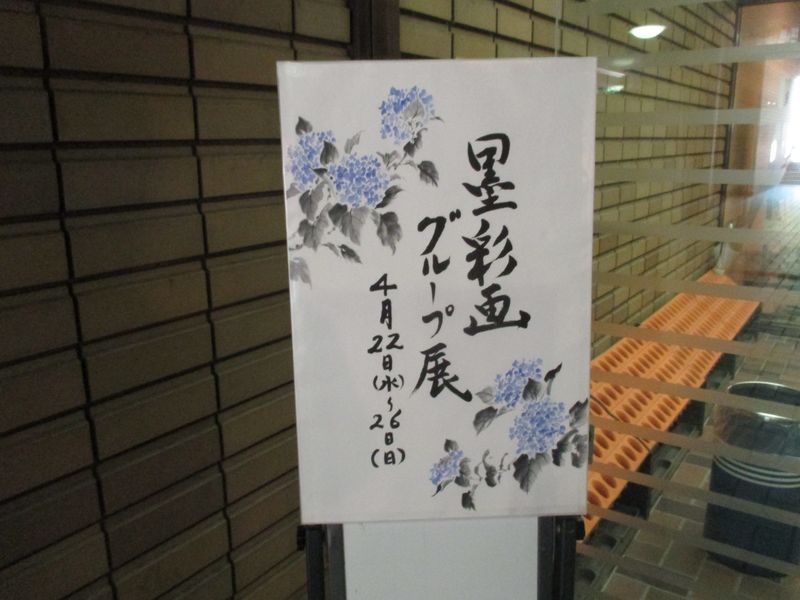 墨彩画
グループ展
4月22日(水)~26日(日)